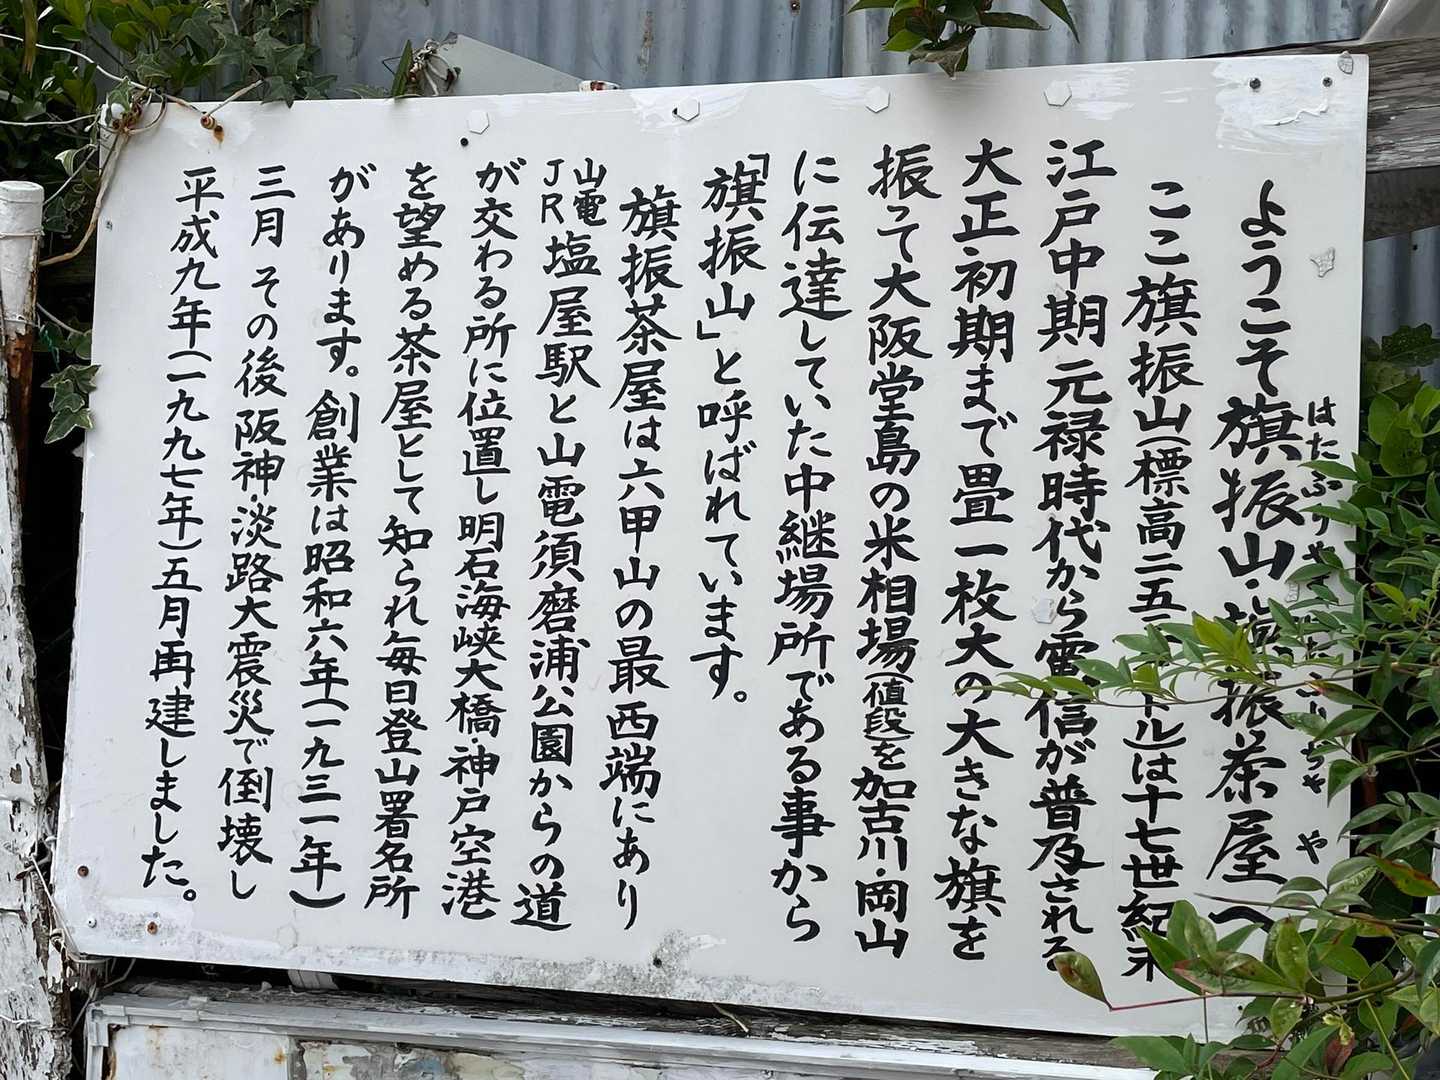 ようこそ旗振山・旗振茶屋へ
はたふりや
や
ここ旗振山(標高二五
ル)は十七世紀末
江戸中期 元禄時代から電信が普及される
大正初期まで畳一枚大の大きな旗を
振って大阪堂島の米相場(値段)を加古川・岡山
に伝達していた中継場所である事から
「旗振山」と呼ばれています。
旗振茶屋は六甲山の最西端にあり
山電
JR塩屋駅と山電須磨浦公園からの道
が交わる所に位置し明石海峡大橋・神戸空港
を望める茶屋として知られ毎日登山署名所
があります。創業は昭和六年(一九三一年)
三月 その後阪神・淡路大震災で倒壊し
平成九年(一九九七年)五月再建しました。